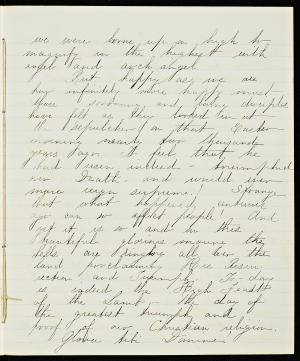 we were borne up on high to
magnify in the highest with
angel and arch angel
But happy as we are
how infinitely more happy must
those sorrowing and loving disciples
have felt as they looked in at
the sepulcher on that Easter
morning nearly two thousand
years ago. To feel that he
had risen indeed - triumphed
over Death and would ever
more reign supreme! Strange
that what happened
ago can so affect people! And
yet it is so and on this
beautiful glorious morning the
bells are ringing all over the
land proclaiming His resur-
rection and triumph. To day
is indeed the High Feast
of the Lamb - The day of
the greatest triumph and
proof of our Christian religion.
Gloria tibi Domine